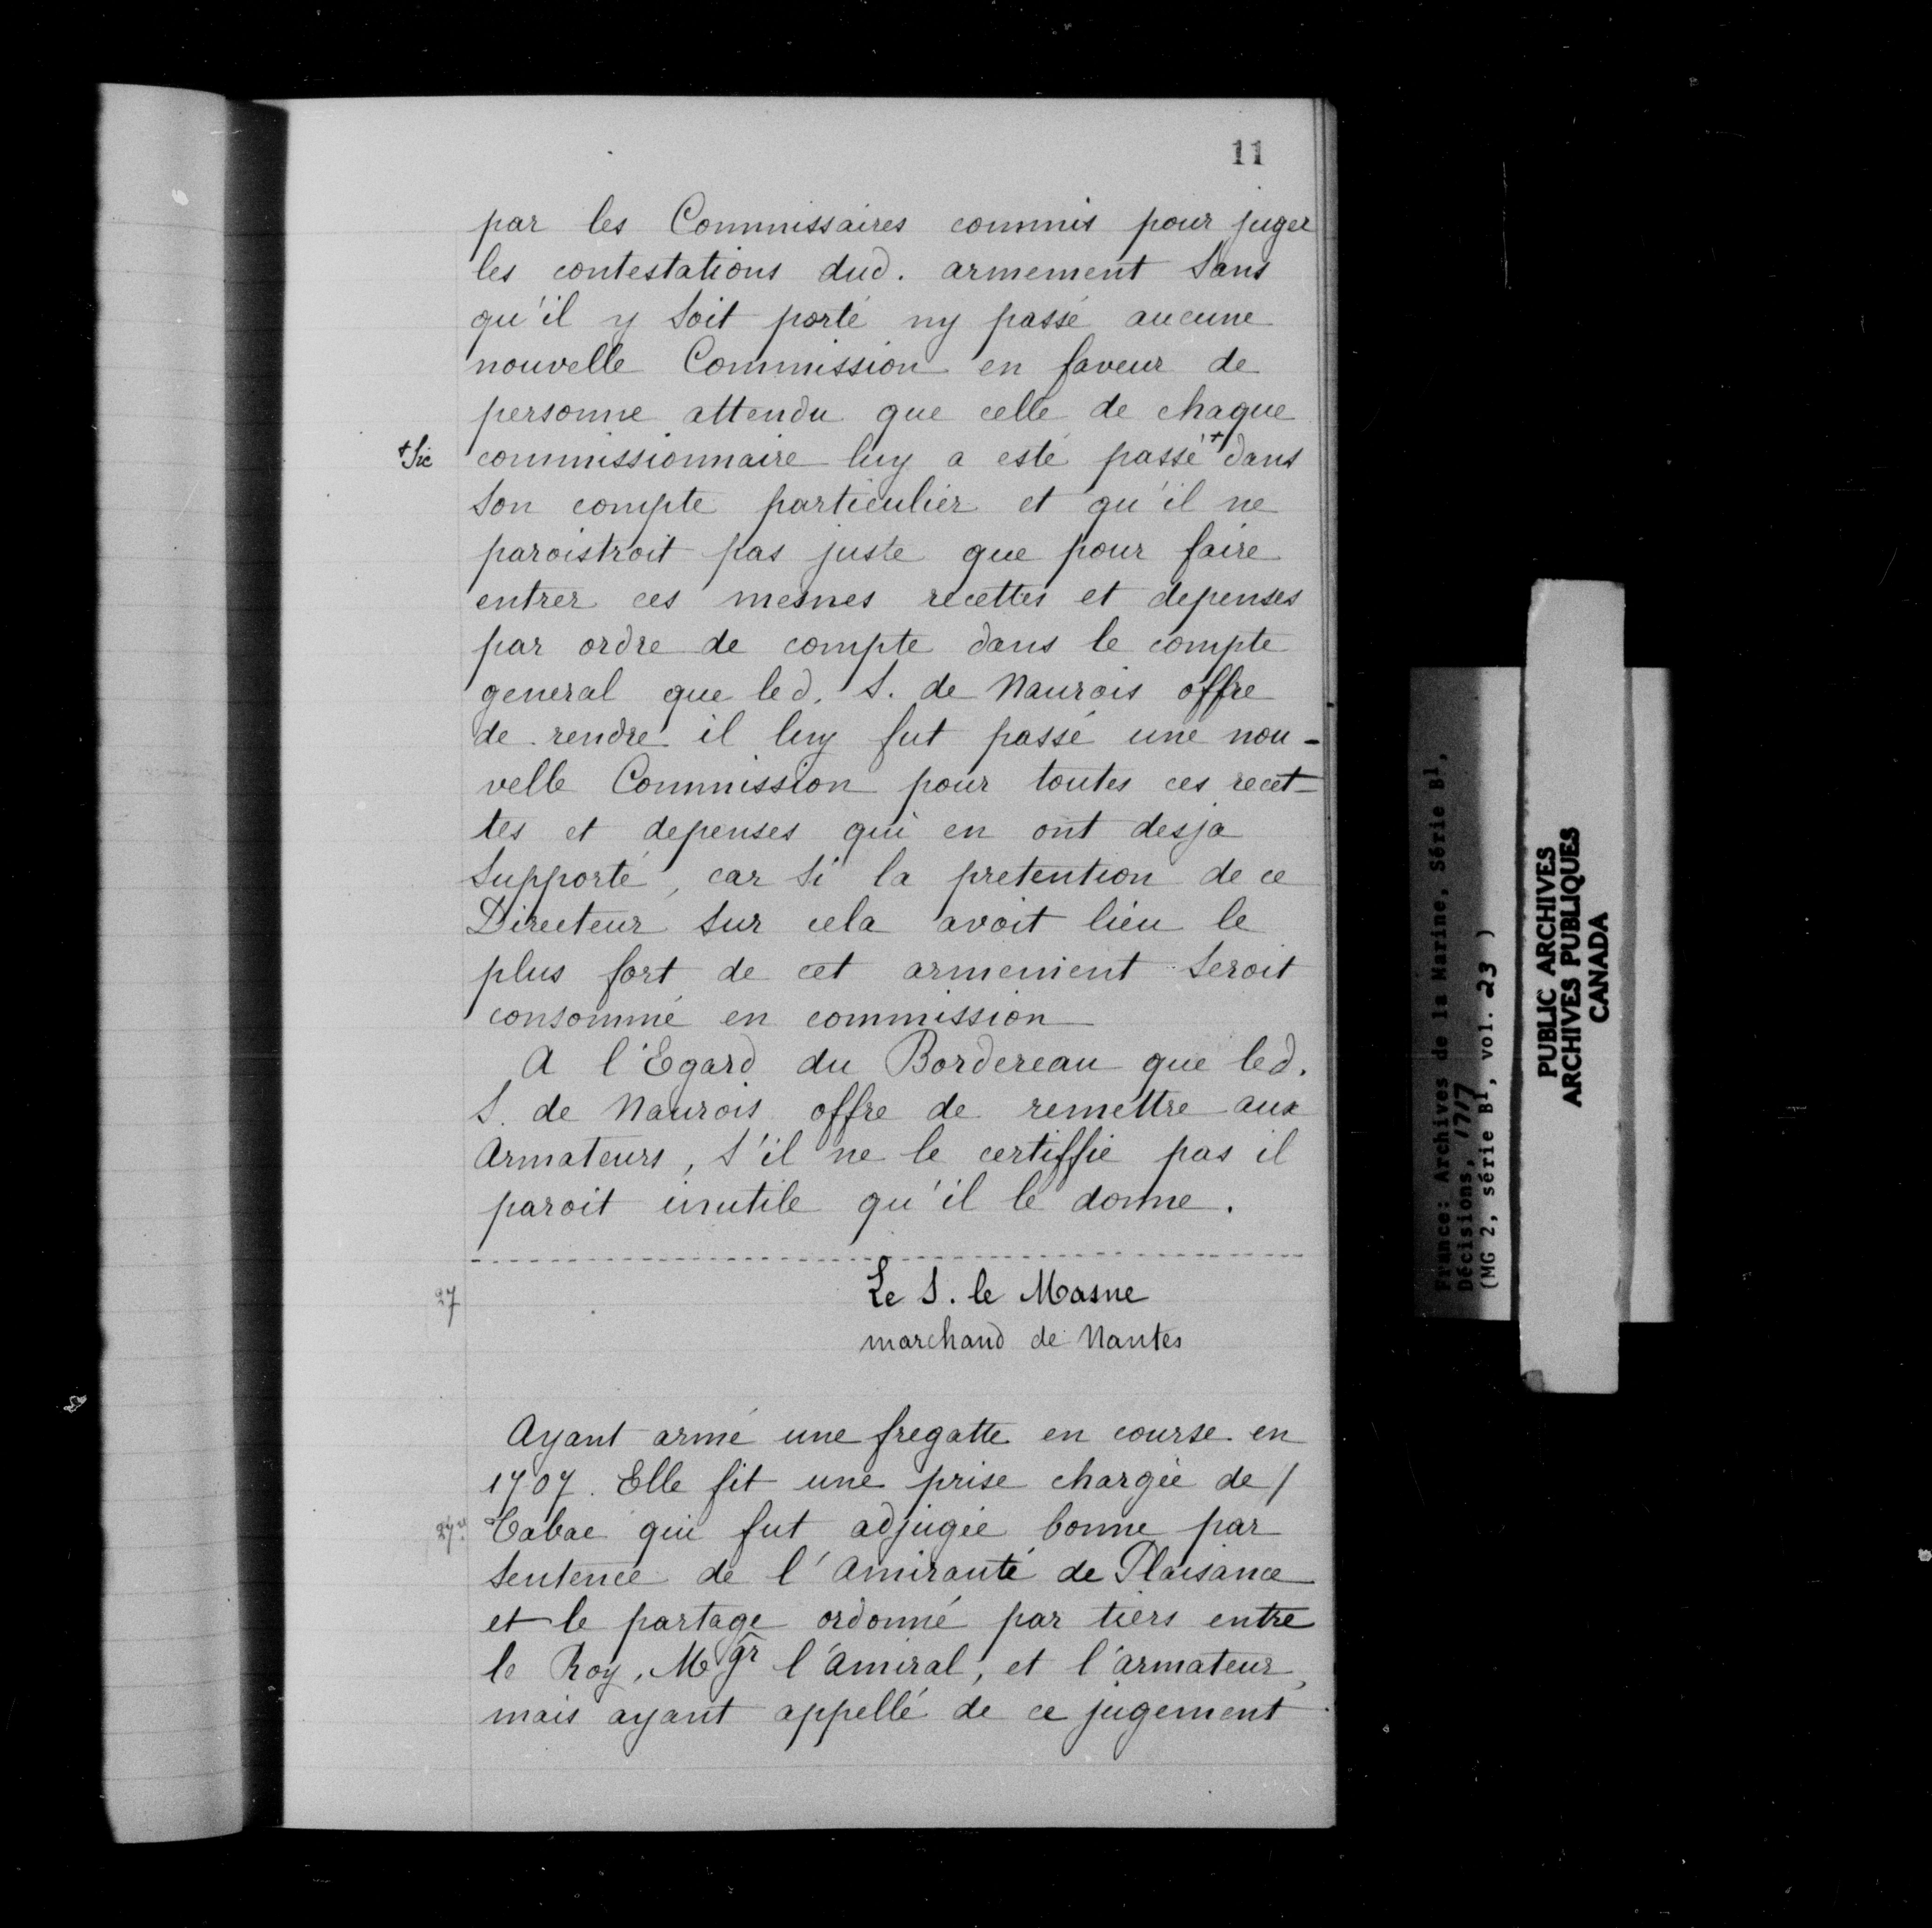 11
par les Commissaires commis pour juger
les contestations dud. armement sans
qu'il y soit porté ny passé aucune
nouvelle Commission en faveur de
personne attendu que celle de chaque
+Sic commissionnaire luy a esté passé+ dans
son compte particulier et qu'il ne
paroistroit pas juste que pour faire
entrer ces mesnes recettes et depenses
par ordre de compte dans le compte
general que led. S. de Naurois offre
de rendre il luy fut passé une nou-
velle Commission pour toutes ces recet-
tes et depenses qui en ont desja
supporté, car si la pretention de ce
Directeur sur cela avoit lieu le
plus fort de cet armement seroit
consommé en commission
A l'Egard du Bordereau que led.
S. de Naurois offre de remettre aux
Armateurs, s'il ne le certiffie pas il
paroit inutile qu'il le donne.
27 Le S. le Masne
marchand de Nantes
Ayant armé une fregatte en course en
1707. Elle fit une prise chargée de /
27v Tabac qui fut adjugée bonne par
sentence de l'Amirauté de Plaisance
et le partage ordonné par tiers entre
le Roy, Mgr l'Amiral, et l'armateur,
mais ayant appellé de ce jugement
France: Archives de la Marine, Série B1,
Décisions, 1717
(MG 2, série B1, vol. 23 )
PUBLIC ARCHIVES
ARCHIVES PUBLIQUES
CANADA